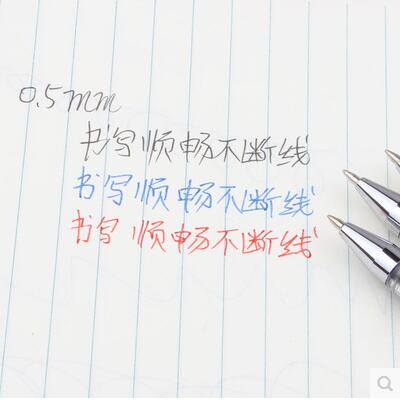 0.5mm
书写顺畅不断线
书写顺畅不断线
书写顺畅不断线